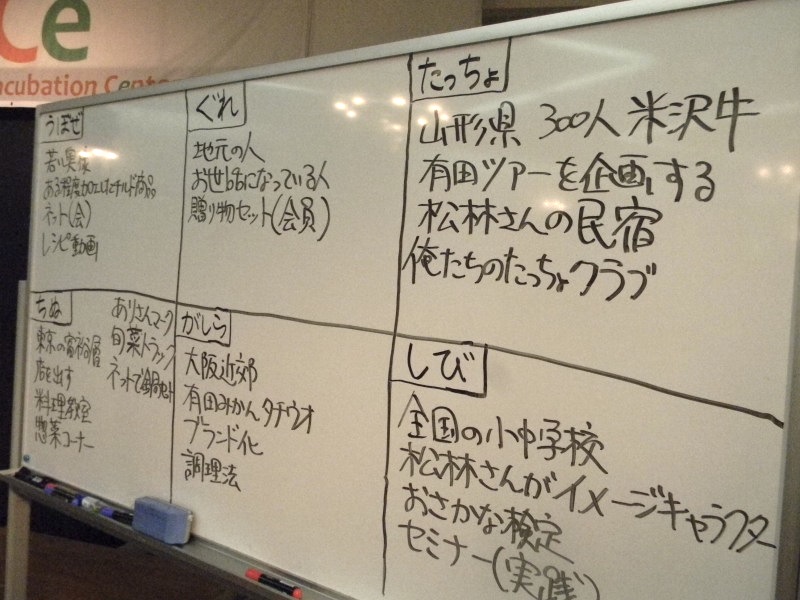 Ce
ncubation Center
うぼぜ
若い
ある程度加工したチルド商品
ネット(会)
レシピ動画
ぐれ
地元の人
お世話になっている人
贈り物セット(会員)
たっちょ
山形県 300人 米沢牛
有田ツアーを企画する
松林さんの民宿
俺たちのたっちょクラブ
ちぬ
東京の富裕層
店を出す
料理教室
惣菜コーナー
ありさんマーク
旬菜トラック
ネットで鍋セット
がしら
大阪近郊
有田みかんタチウオ
ブランド化
調理法
しび
全国の小中学校
松林さんがイメージキャラクター
おさかな検定
セミナー(実践)